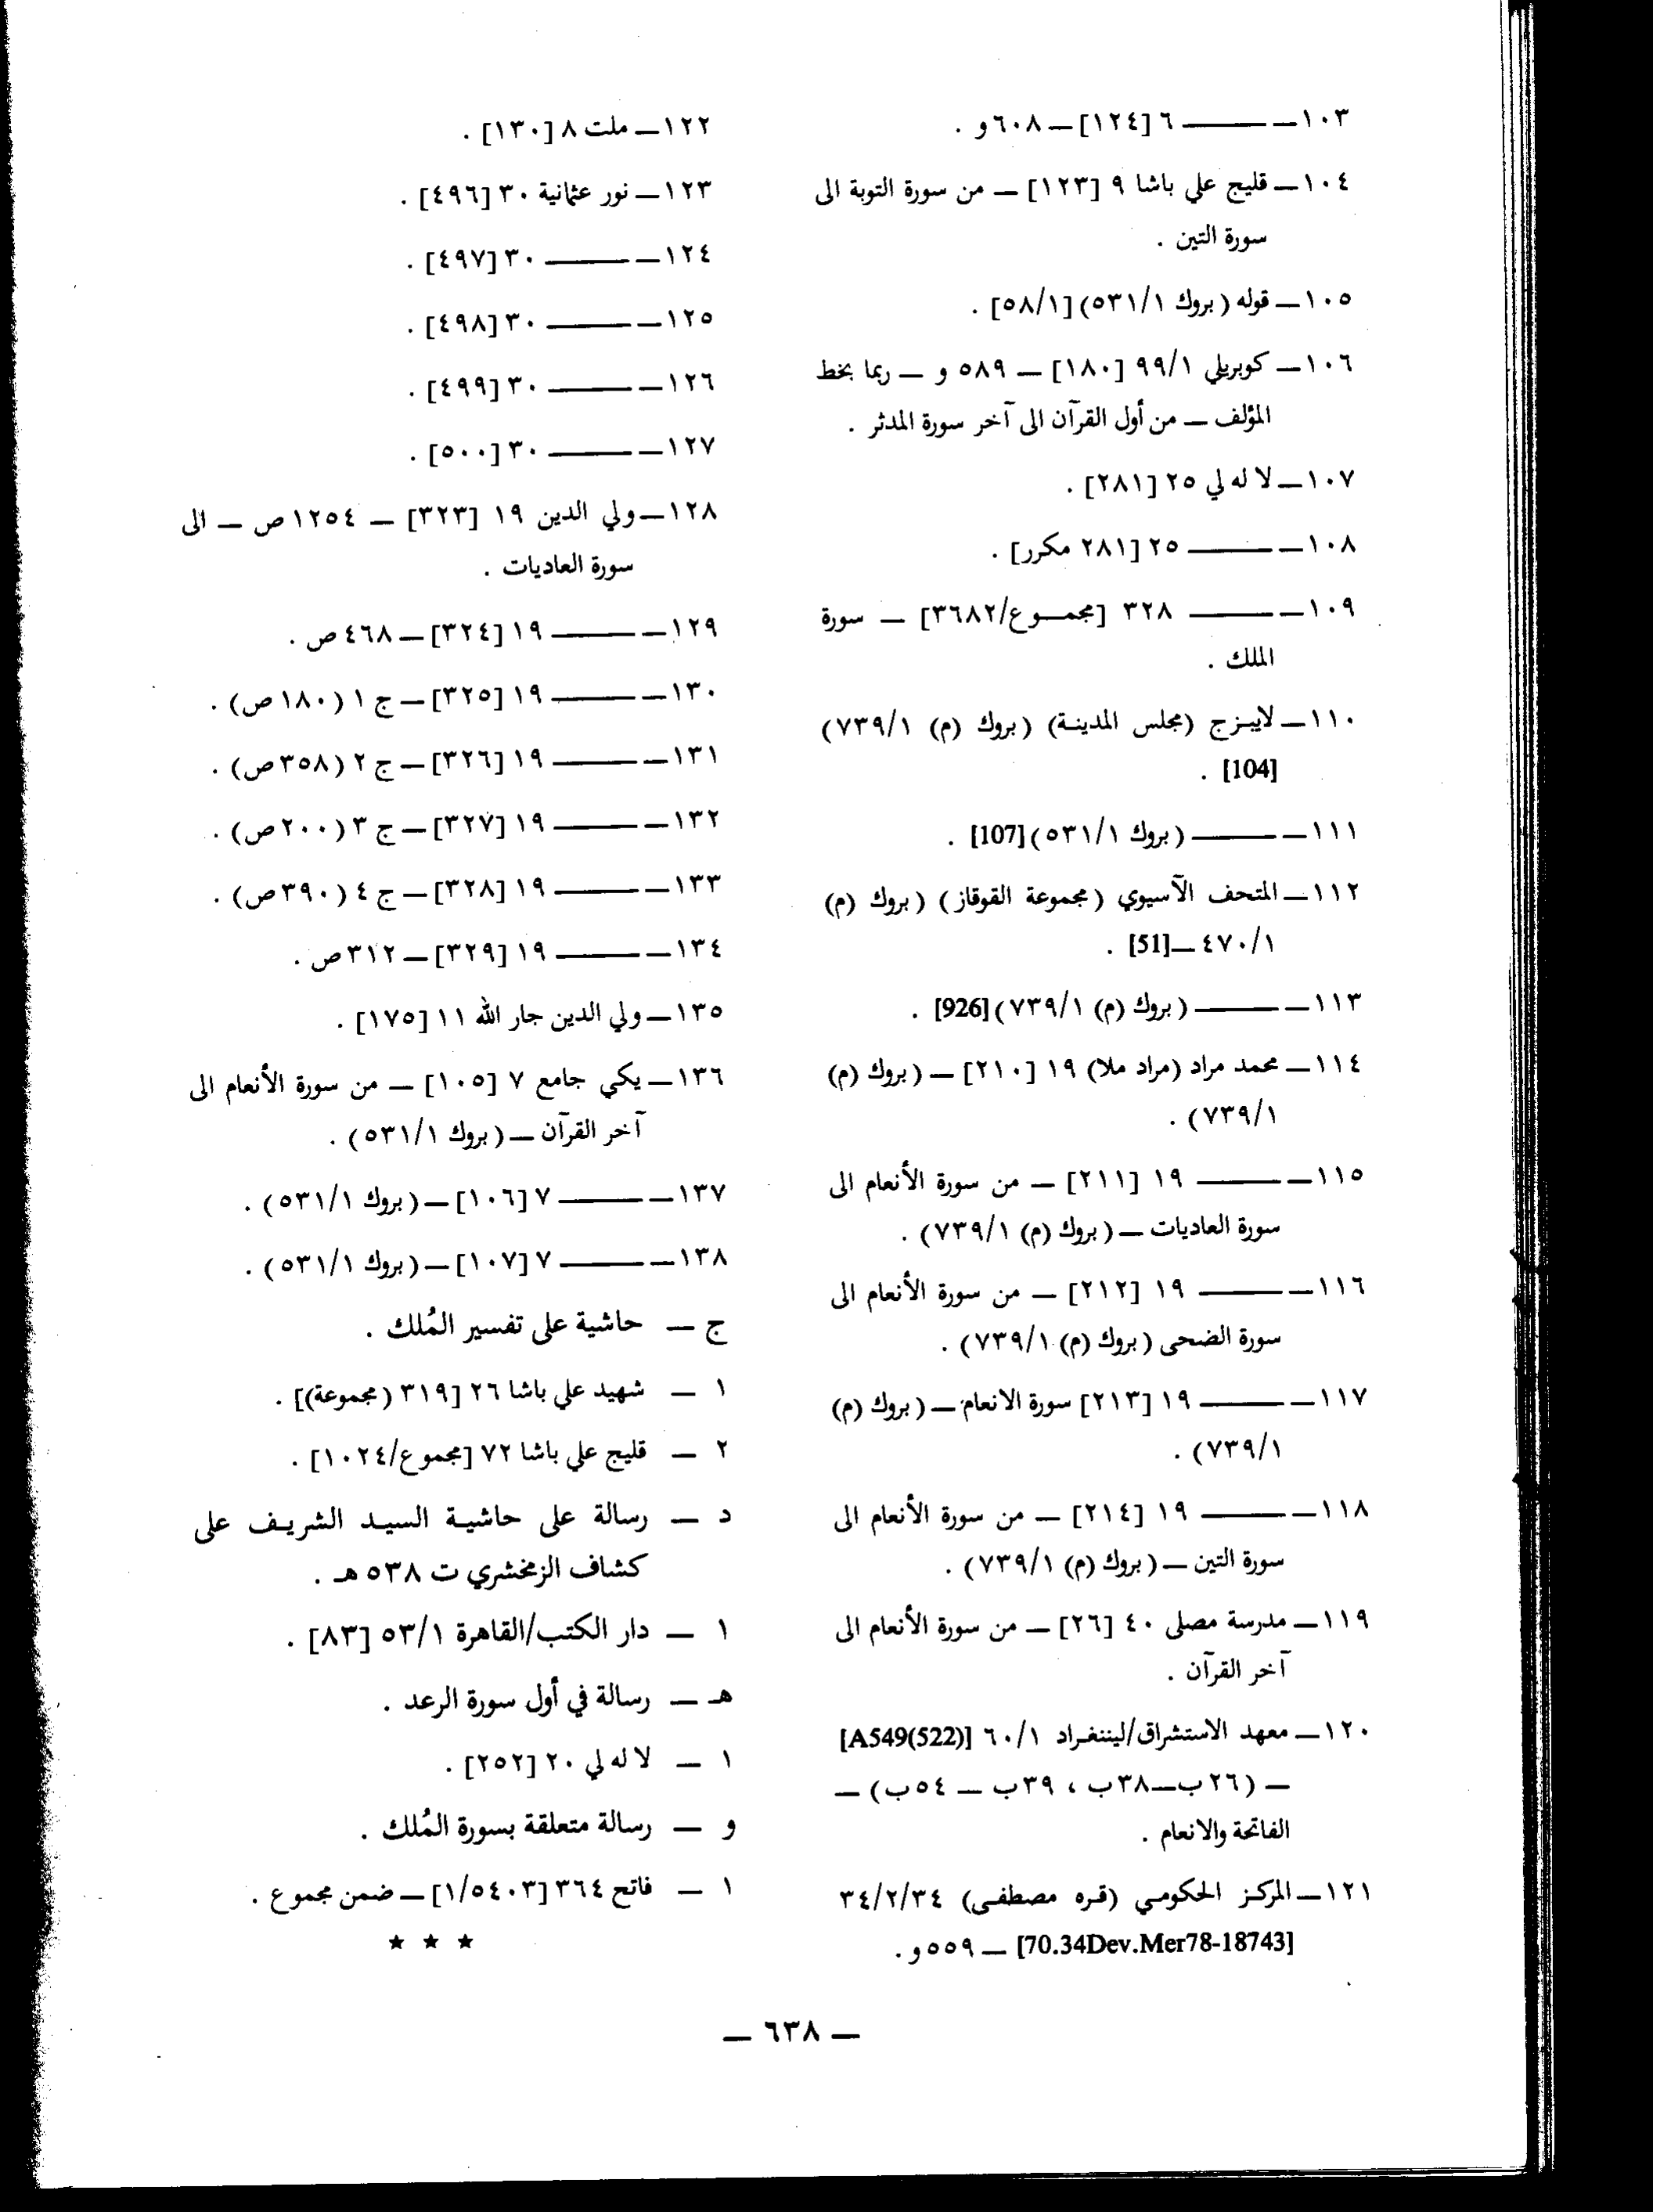 ١٠٣ـ ــــــــ ٦ [١٢٤] ــ ٦٠٨و .
١٠٤ـ قليج علي باشا ٩ [١٢٣] ــ من سورة التوبة الى
سورة التين .
١٠٥ـ قوله (بروك ٥٣١/١) [٥٨/١] .
١٠٦ـ كوبريلي ٩٩/١ [١٨٠] ــ ٥٨٩ و ــ ربما بخط
المؤلف ــ من أول القرآن الى آخر سورة المدثر .
١٠٧ـ لا له لي ٢٥ [٢٨١] .
١٠٨ـ ــــــــ ٢٥ [٢٨١ مكرر] .
١٠٩ـ ــــــــ ٣٢٨ [مجمـــوع/٣٦٨٢] ــ سورة
الملك .
١١٠ـ لايبـزج (مجلس المدينـة) (بروك (م) ٧٣٩/١)
[104] .
١١١ـ ــــــــ (بروك ٥٣١/١) [107] .
١١٢ـ المتحف الآسيوي (مجموعة القوقاز) (بروك (م)
٤٧٠/١ ــ [51] .
١١٣ـ ــــــــ (بروك (م) ٧٣٩/١) [926] .
١١٤ـ محمد مراد (مراد ملا) ١٩ [٢١٠] ــ (بروك (م)
٧٣٩/١) .
١١٥ـ ــــــــ ١٩ [٢١١] ــ من سورة الأنعام الى
سورة العاديات ــ (بروك (م) ٧٣٩/١) .
١١٦ـ ــــــــ ١٩ [٢١٢] ــ من سورة الأنعام الى
سورة الضحى (بروك (م) ٧٣٩/١) .
١١٧ـ ــــــــ ١٩ [٢١٣] سورة الانعام ــ (بروك (م)
٧٣٩/١) .
١١٨ـ ــــــــ ١٩ [٢١٤] ــ من سورة الأنعام الى
سورة التين ــ (بروك (م) ٧٣٩/١) .
١١٩ـ مدرسة مصلى ٤٠ [٢٦] ــ من سورة الأنعام الى
آخر القرآن .
١٢٠ـ معهد الاستشراق/ليننغـراد ٦٠/١ [A549(522)]
ــ (٢٦ب ــ ٣٨ب ، ٣٩ب ــ ٥٤ب) ــ
الفاتحة والانعام .
١٢١ـ المركـز الحكومـي (قـره مصطفـى) ٣٤/٢/٣٤
[70.34Dev.Mer78-18743] ــ ٥٥٩و .
١٢٢ـ ملت ٨ [١٣٠] .
١٢٣ـ نور عثمانية ٣٠ [٤٩٦] .
١٢٤ـ ــــــــ ٣٠ [٤٩٧] .
١٢٥ـ ــــــــ ٣٠ [٤٩٨] .
١٢٦ـ ــــــــ ٣٠ [٤٩٩] .
١٢٧ـ ــــــــ ٣٠ [٥٠٠] .
١٢٨ـ ولي الدين ١٩ [٣٢٣] ــ ١٢٥٤ص ــ الى
سورة العاديات .
١٢٩ـ ــــــــ ١٩ [٣٢٤] ــ ٤٦٨ص .
١٣٠ـ ــــــــ ١٩ [٣٢٥] ــ ج ١ (١٨٠ص) .
١٣١ـ ــــــــ ١٩ [٣٢٦] ــ ج ٢ (٣٥٨ص) .
١٣٢ـ ــــــــ ١٩ [٣٢٧] ــ ج ٣ (٢٠٠ص) .
١٣٣ـ ــــــــ ١٩ [٣٢٨] ــ ج ٤ (٣٩٠ص) .
١٣٤ـ ــــــــ ١٩ [٣٢٩] ــ ٣١٢ص .
١٣٥ـ ولي الدين جار الله ١١ [١٧٥] .
١٣٦ـ يكي جامع ٧ [١٠٥] ــ من سورة الأنعام الى
آخر القرآن ــ (بروك ٥٣١/١) .
١٣٧ـ ــــــــ ٧ [١٠٦] ــ (بروك ٥٣١/١) .
١٣٨ـ ــــــــ ٧ [١٠٧] ــ (بروك ٥٣١/١) .
ج ــ حاشية على تفسير المُلك .
١ ــ شهيد علي باشا ٢٦ [٣١٩ (مجموعة)] .
٢ ــ قليج علي باشا ٧٢ [مجموع/١٠٢٤] .
د ــ رسالة على حاشيـة السيـد الشريـف على
كشاف الزمخشري ت ٥٣٨هـ .
١ ــ دار الكتب/القاهرة ٥٣/١ [٨٣] .
هـ ــ رسالة في أول سورة الرعد .
١ ــ لا له لي ٢٠ [٢٥٢] .
و ــ رسالة متعلقة بسورة المُلك .
١ ــ فاتح ٣٦٤ [١/٥٤٠٣] ــ ضمن مجموع .
★ ★ ★
ــ ٦٣٨ ــ